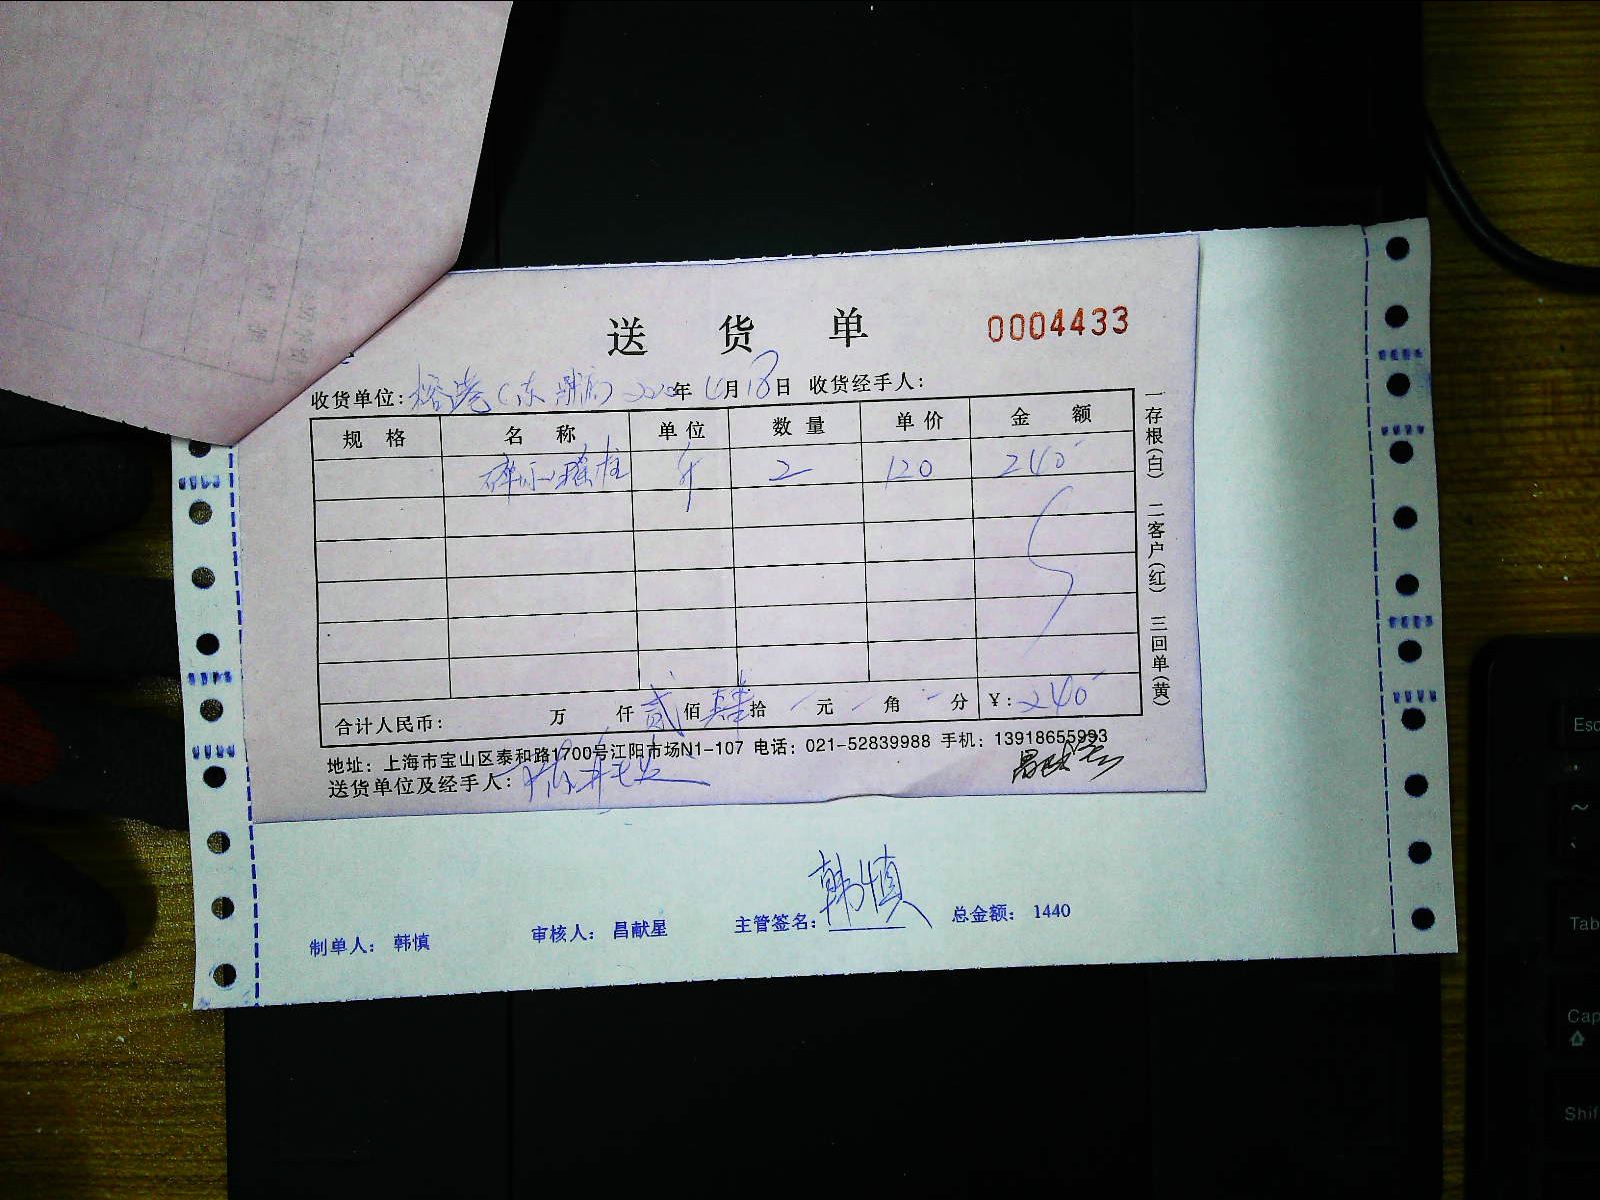 送 货 单 0004433
收货单位: 榕港(东 店) 2020年 4月18日 收货经手人:
规 格 名 称 单 位 数 量 单 价 金 额
瑶柱 斤 2 120 240
合计人民币: 万 仟 贰 佰 肆 拾 元 角 分 ¥: 240
地址: 上海市宝山区泰和路1700号江阳市场N1-107 电话: 021-52839988 手机: 13918655993
送货单位及经手人:
昌献星
一存根(白) 二客户(红) 三回单(黄)
韩慎
制单人: 韩慎 审核人: 昌献星 主管签名: 总金额: 1440
Esc
~
Tab
Cap
Shif